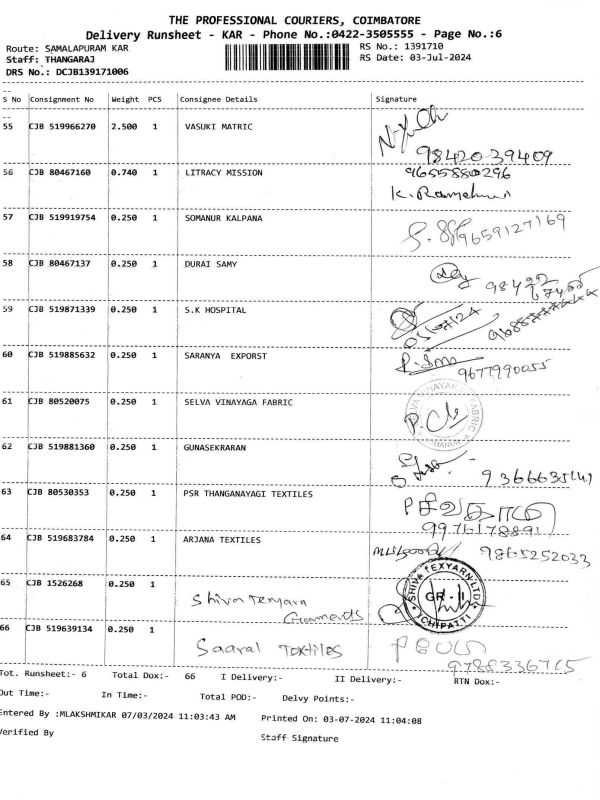 THE PROFESSIONAL COURIERS, COIMBATORE
Delivery Runsheet - KAR - Phone No.:0422-3505555 - Page No.:6
Route: SAMALAPURAM KAR RS No.: 1391710
Staff: THANGARAJ RS Date: 03-Jul-2024
DRS No.: DCJB139171006
S No Consignment No Weight PCS Consignee Details Signature
55 CJB 519966270 2.500 1 VASUKI MATRIC
98420 39409
56 CJB 80467160 0.740 1 LITRACY MISSION 9655880296
57 CJB 519919754 0.250 1 SOMANUR KALPANA 9659127169
58 CJB 80467137 0.250 1 DURAI SAMY
59 CJB 519871339 0.250 1 S.K HOSPITAL
60 CJB 519885632 0.250 1 SARANYA EXPORST
9677990055
61 CJB 80520075 0.250 1 SELVA VINAYAGA FABRIC
62 CJB 519881360 0.250 1 GUNASEKRARAN
63 CJB 80530353 0.250 1 PSR THANGANAYAGI TEXTILES
9976178891
64 CJB 519683784 0.250 1 ARJANA TEXTILES 9865252033
65 CJB 1526268 0.250 1
Shiva Texyarn
Garments
SHIVA TEXYARN LTD
GR - II
66 CJB 519639134 0.250 1
Saaral Textiles
Tot. Runsheet:- 6 Total Dox:- 66 I Delivery:- II Delivery:- RTN Dox:-
Out Time:- In Time:- Total POD:- Delvy Points:-
Entered By :MLAKSHMIKAR 07/03/2024 11:03:43 AM Printed On: 03-07-2024 11:04:08
Verified By Staff Signature